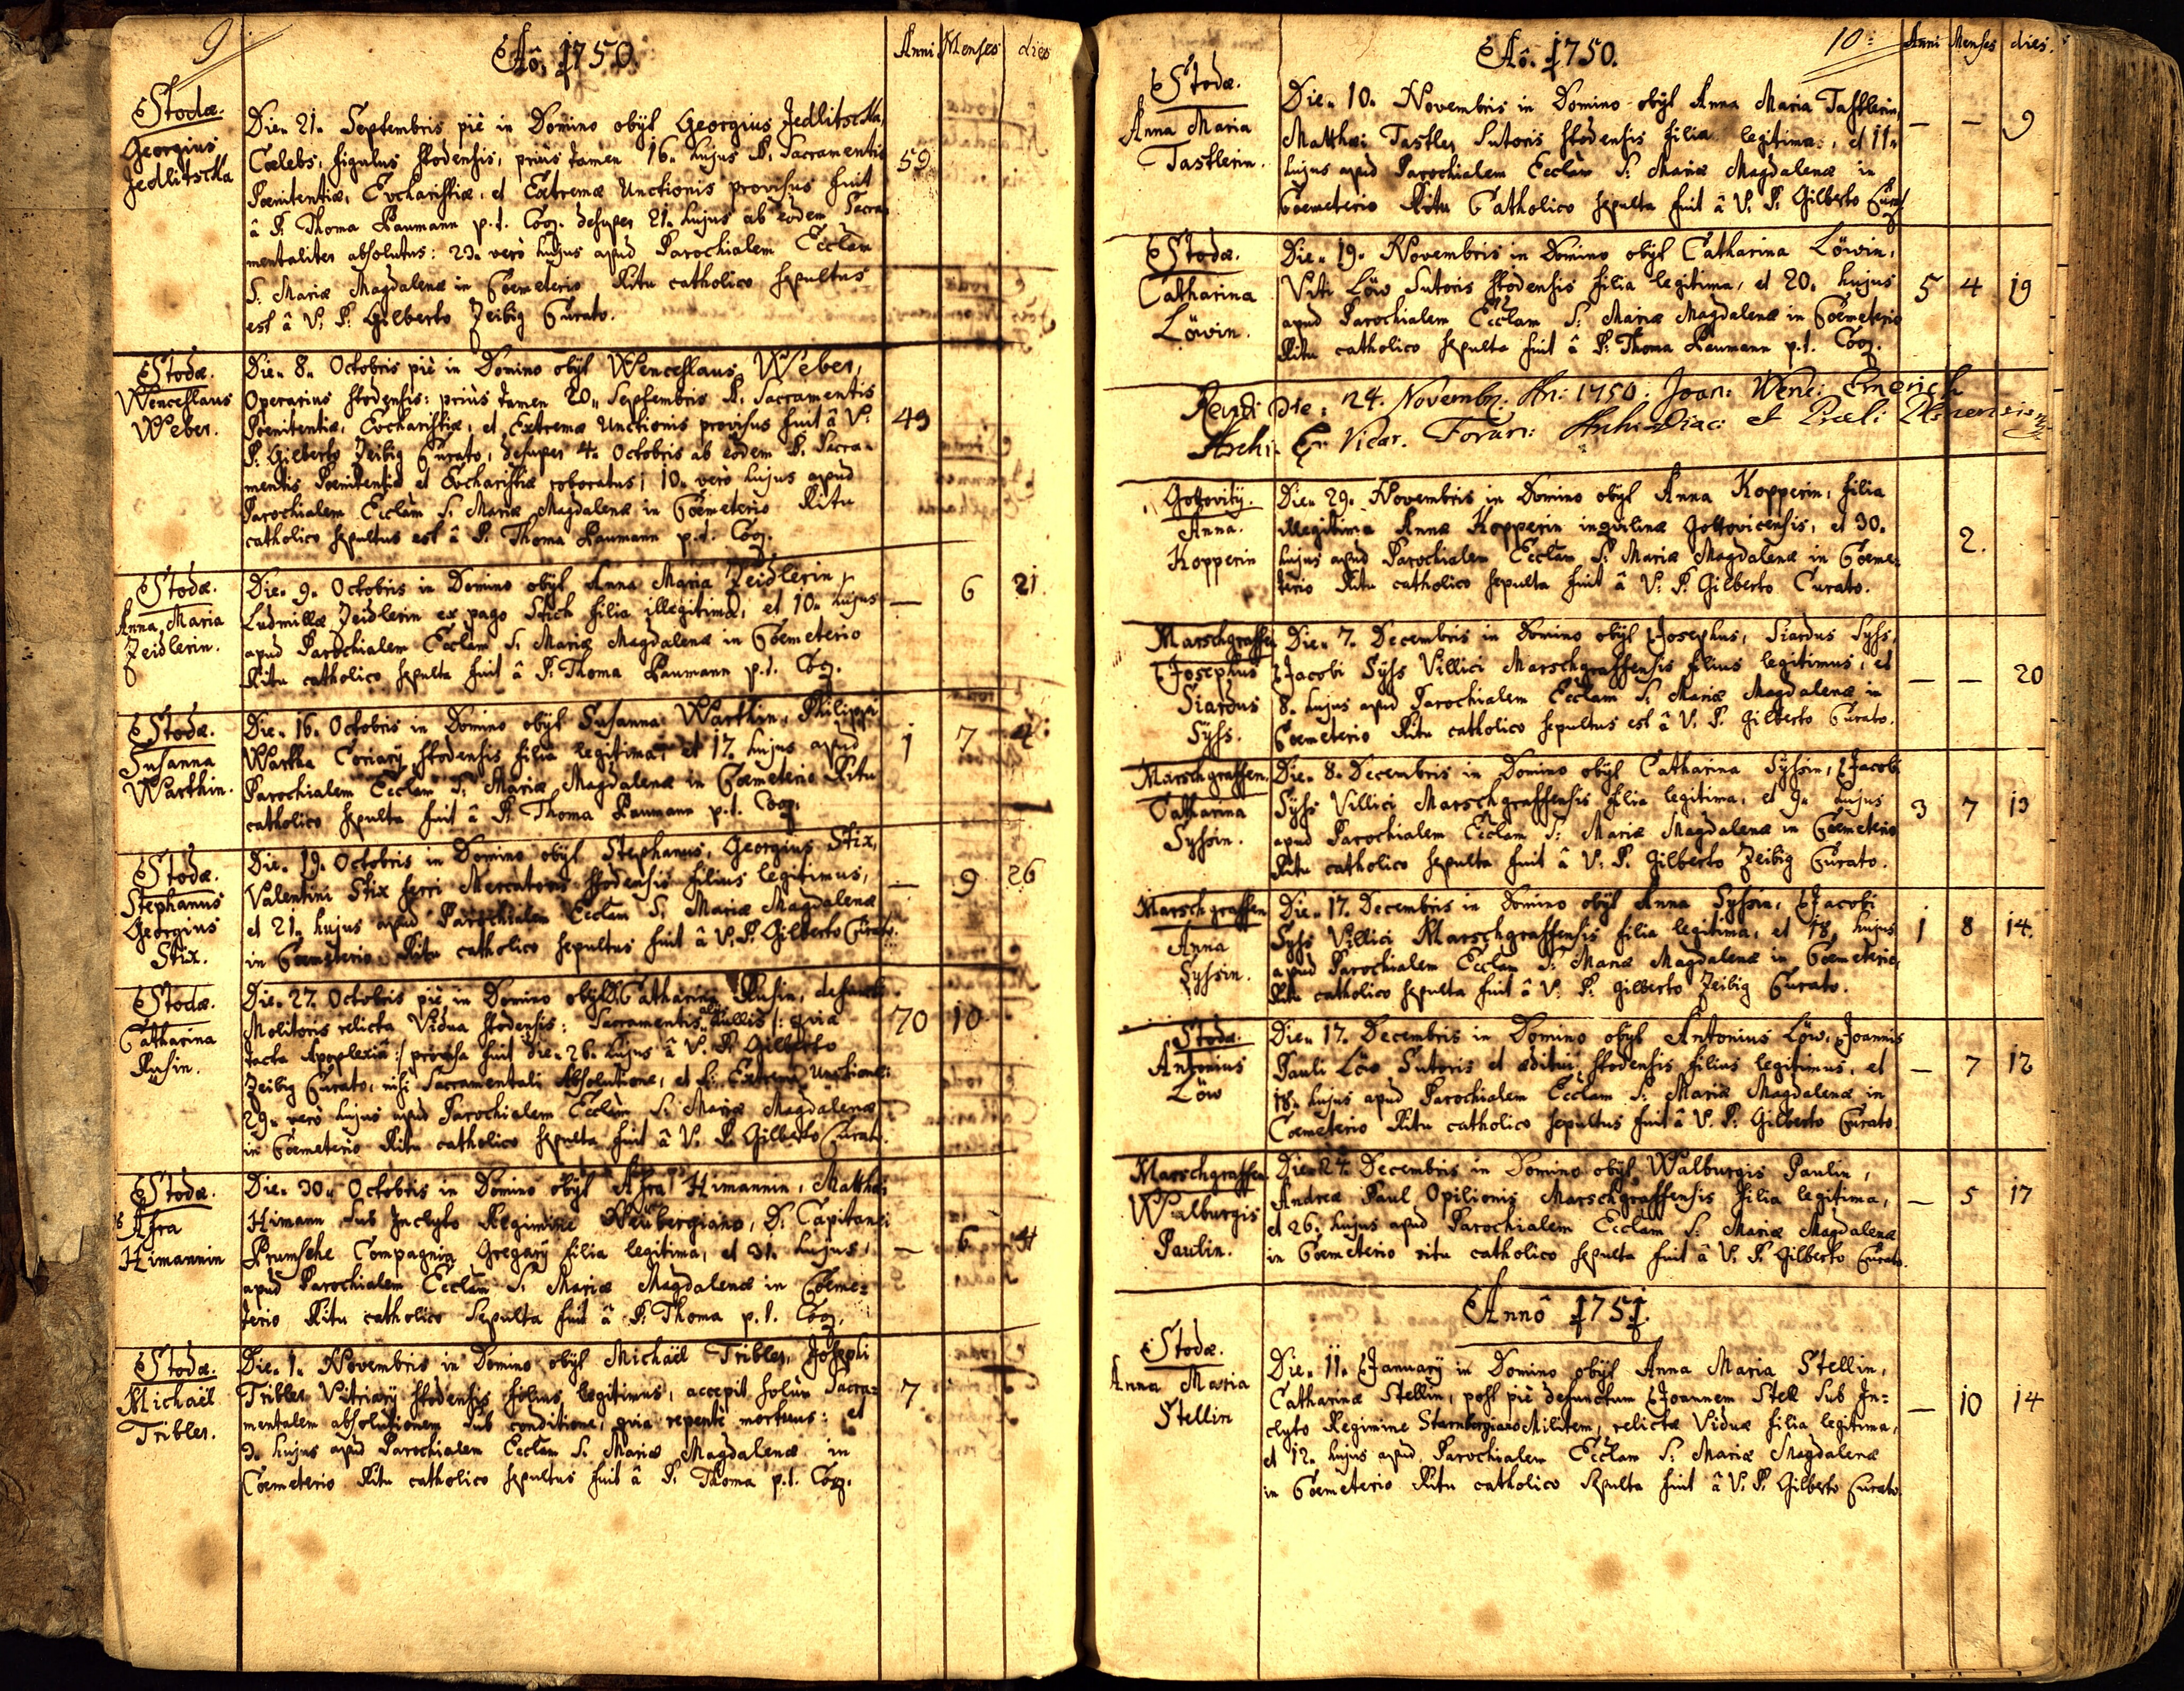 9
Aõ. 1750.
Anni Menses dies
Stodæ.
Georgius
Jedlitschka
Die. 21. Septembris piè in Domino obijt Georgius Jedlitschka,
Cælebs, figulus stodensis, priùs tamen 16. hujus SS. Sacramentis
Pœnitentiæ, Eucharistiæ, et Extremæ Unctionis provisus fuit
â P. Thoma Raumann p.t. Coop. desuper 21. hujus ab eodem Sacra-
mentaliter absolutus: 23. verò hujus apud Parochialem Ecclam
S. Mariæ Magdalenæ in Coemeterio Ritu catholico sepultus
est â V. P. Gilberto Zeibig Curato.
59
Stodæ.
Wenceslaus
Weber.
Die. 8. Octobris piè in Domino obijt Wenceslaus Weber,
Operarius stodensis: priùs tamen 20. Septembris SS. Sacramentis
Pœnitentiæ, Eucharistiæ, et Extremæ Unctionis provisus fuit â V.
P. Gilberto Zeibig Curato, desuper 4. Octobris ab eodem SS. Sacra-
mentis Pœnitentiæ et Eucharistiæ roboratus, 10. verò hujus apud
Parochialem Ecclam S. Mariæ Magdalenæ in Coemeterio Ritu
catholico sepultus est â P. Thoma Raumann p.t. Coop.
49
Stodæ.
Anna Maria
Zeidlerin.
Die. 9. Octobris in Domino obijt Anna Maria Zeidlerin,
Ludmillæ Zeidlerin ex pago Stich filia illegitima, et 10. hujus
apud Parochialem Ecclam S. Mariæ Magdalenæ in Coemeterio
Ritu catholico sepulta fuit â P. Thoma Raumann p.t. Coop.
— 6 21
Stodæ.
Susanna
Warthin.
Die. 16. Octobris in Domino obijt Susanna Warthin, Philippi
Wartha Coriarij stodensis filia legitima, et 17. hujus apud
Parochialem Ecclam S. Mariæ Magdalenæ in Coemeterio Ritu
catholico sepulta fuit â P. Thoma Raumann p.t. Coop.
1 7 4
Stodæ.
Stephanus
Georgius
Stix.
Die. 19. Octobris in Domino obijt Stephanus, Georgius Stix,
Valentini Stix ferri Mercatoris stodensis filius legitimus,
et 21. hujus apud Parochialem Ecclam S. Mariæ Magdalenæ
in Coemeterio Ritu catholico sepultus fuit â V. P. Gilberto Curato.
— 9 26
Stodæ.
Catharina
Rusin.
Die. 27. Octobris piè in Domino obijt Catharina Rusin, defuncti
Molitoris relicta Vidua stodensis: Sacramentis alijs nullis /: quia
tacta Apoplexiâ :/ provisa fuit die. 26. hujus â V. P. Gilberto
Zeibig Curato, nisi Sacramentali Absolutione, et S. Extrema Unctione:
29. verò hujus apud Parochialem Ecclam S. Mariæ Magdalenæ
in Coemeterio Ritu catholico sepulta fuit â V. P. Gilberto Curato.
70 10
Stodæ.
Afra
Himannin
Die. 30. Octobris in Domino obijt Afra Himannin, Matthæi
Himann sub Inclyto Regimine Neübergiano, D. Capitanei
Prumsche Compagnia Gregarij filia legitima, et 31. hujus,
apud Parochialem Ecclam S. Mariæ Magdalenæ in Coeme=
terio Ritu catholico Sepulta fuit â P. Thoma p.t. Coop.
— 6
Stodæ.
Michaël
Tribler.
Die. 1. Novembris in Domino obijt Michaël Tribler, Josephi
Tribler Vitriarij stodensis filius legitimus, accepit solùm Sacra=
mentalem absolutionem sub conditione, quia repentè mortuus: et
3. hujus apud Parochialem Ecclam S. Mariæ Magdalenæ in
Coemeterio Ritu catholico sepultus fuit â P. Thoma p.t. Coop.
7
Aõ. 1750.
10.
Anni Menses dies.
Stodæ.
Anna Maria
Tastlerin.
Die. 10. Novembris in Domino obijt Anna Maria Tastlerin,
Matthæi Tastler Sutoris stodensis filia legitima, et 11.
hujus apud Parochialem Ecclam S. Mariæ Magdalenæ in
Coemeterio Ritu Catholico sepulta fuit â V. P. Gilberto Curat.
— — 9
Stodæ.
Catharina
Löwin.
Die. 19. Novembris in Domino obijt Catharina Löwin,
Viti Löw Sutoris stodensis filia legitima, et 20. hujus
apud Parochialem Ecclam S. Mariæ Magdalenæ in Coemeterio
Ritu catholico sepulta fuit â P. Thoma Raumann p.t. Coop.
5 4 19
Die: 24. Novembr. An: 1750: Joan: Wenc: Emerich
Archi Vicar. Foran: Archi-Diac:
Gottovitij.
Anna.
Kopperin
Die. 29. Novembris in Domino obijt Anna Kopperin, filia
illegitima Annæ Kopperin inquilinæ Gottovicensis, et 30.
hujus apud Parochialem Ecclam S. Mariæ Magdalenæ in Coeme:
terio Ritu catholico sepulta fuit â V. P. Gilberto Curato.
2.
Marschgraffen
Josephus
Siardus
Syss.
Die. 7. Decembris in Domino obijt Josephus, Siardus Syss,
Jacobi Syss Villici Marschgraffensis filius legitimus, et
8. hujus apud Parochialem Ecclam S. Mariæ Magdalenæ in
Coemeterio Ritu catholico sepultus est â V. P. Gilberto Curato.
— — 20
Marschgraffen.
Catharina
Syssin.
Die. 8. Decembris in Domino obijt Catharina Syssin, Jacobi
Syss Villici Marschgraffensis filia legitima, et 9. hujus
apud Parochialem Ecclam S. Mariæ Magdalenæ in Coemeterio
Ritu catholico sepulta fuit â V. P. Gilberto Zeibig Curato.
3 7 13
Marschgraffen
Anna
Syssin.
Die. 17. Decembris in Domino obijt Anna Syssin, Jacobi
Syss Villici Marschgraffensis filia legitima, et 18. hujus
apud Parochialem Ecclam S. Mariæ Magdalenæ in Coemeterio,
Ritu catholico sepulta fuit â V. P. Gilberto Zeibig Curato.
1 8 14.
Stodæ.
Antonius
Löw
Die. 17. Decembris in Domino obijt Antonius Löw, Joannis
Pauli Löw Sutoris et æditui stodensis filius legitimus, et
18. hujus apud Parochialem Ecclam S. Mariæ Magdalenæ in
Coemeterio Ritu catholico sepultus fuit â V. P. Gilberto Curato
— 7 12
Marschgraffen
Walburgis
Paulin.
Die. 24. Decembris in Domino obijt Walburgis Paulin,
Andreæ Paul Opilionis Marschgraffensis filia legitima,
et 26. hujus apud Parochialem Ecclam S. Mariæ Magdalenæ
in Coemeterio ritu catholico sepulta fuit â V. P. Gilberto Curato.
— 5 17
Annô 1751.
Stodæ.
Anna Maria
Stellin
Die. 11. Januarij in Domino obijt Anna Maria Stellin,
Catharinæ Stellin, post piè defunctum Joannem Stell sub In=
clyto Regimine Starnbergiano Militem, relictæ Viduæ filia legitima,
et 12. hujus apud Parochialem Ecclam S. Mariæ Magdalenæ
in Coemeterio Ritu catholico sepulta fuit â V. P. Gilberto Curato
— 10 14